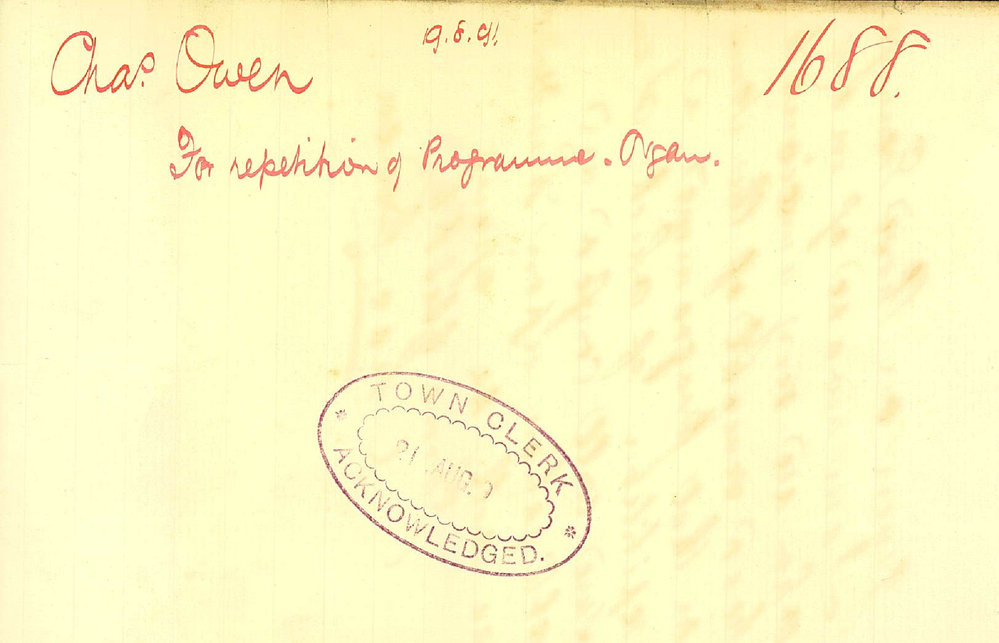 Chas. Owen
19.8.91.
1688.
For repetition of Programme. Organ.
TOWN CLERK
21 AUG. 9
ACKNOWLEDGED.